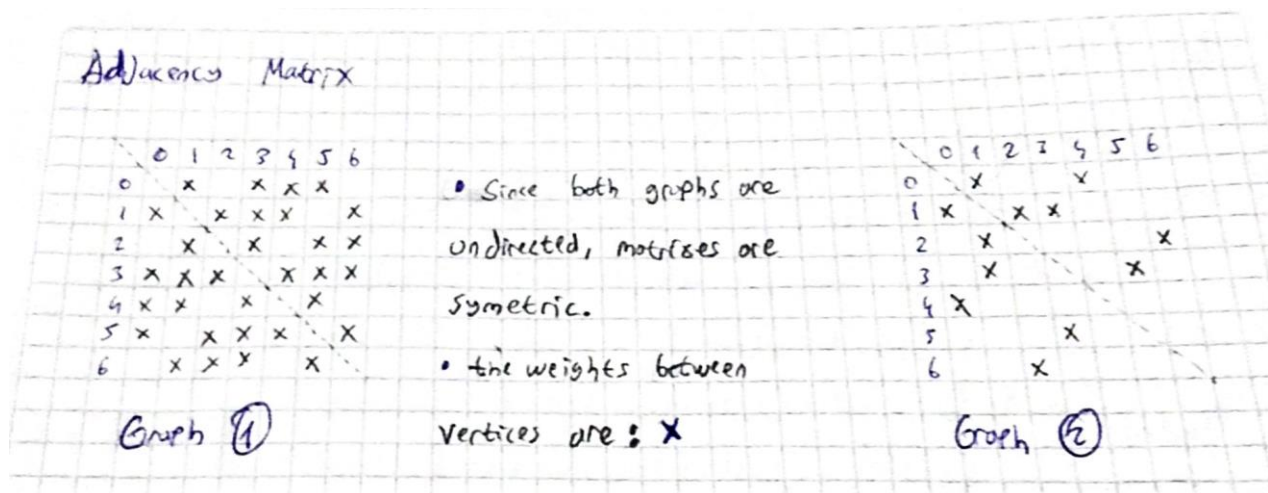 Adjacency Matrix
0 1 2 3 4 5 6
0 x x x x
1 x x x x x
2 x x x x
3 x x x x x x
4 x x x x
5 x x x x x
6 x x x x
Graph 1
• Since both graphs are
undirected, matrises are
symetric.
• the weights between
vertices are : x
0 1 2 3 4 5 6
0 x x
1 x x x
2 x x
3 x x
4 x
5 x
6 x
Graph 2